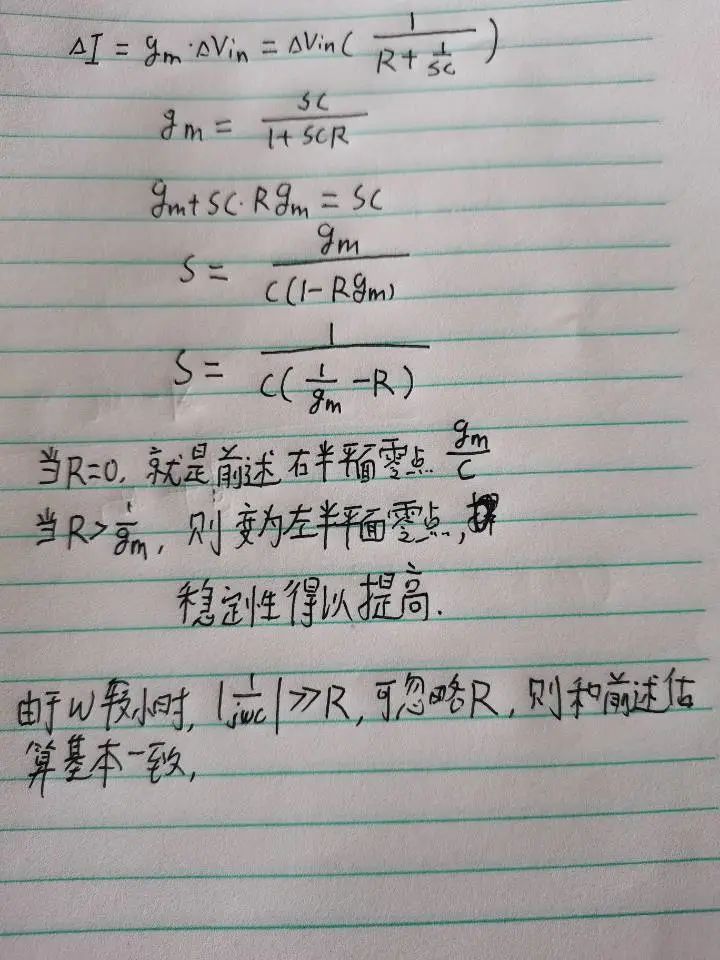 ΔI = gm·ΔVin = ΔVin( 1/(R + 1/SC) )
gm = SC/(1+SCR)
gm+SC·Rgm = SC
S = gm/(C(1-Rgm))
S = 1/(C(1/gm - R))
当R=0, 就是前述右半平面零点 gm/C
当R>1/gm, 则变为左半平面零点,
稳定性得以提高.
由于W较小时, |1/jwc|≫R, 可忽略R, 则和前述估
算基本一致,